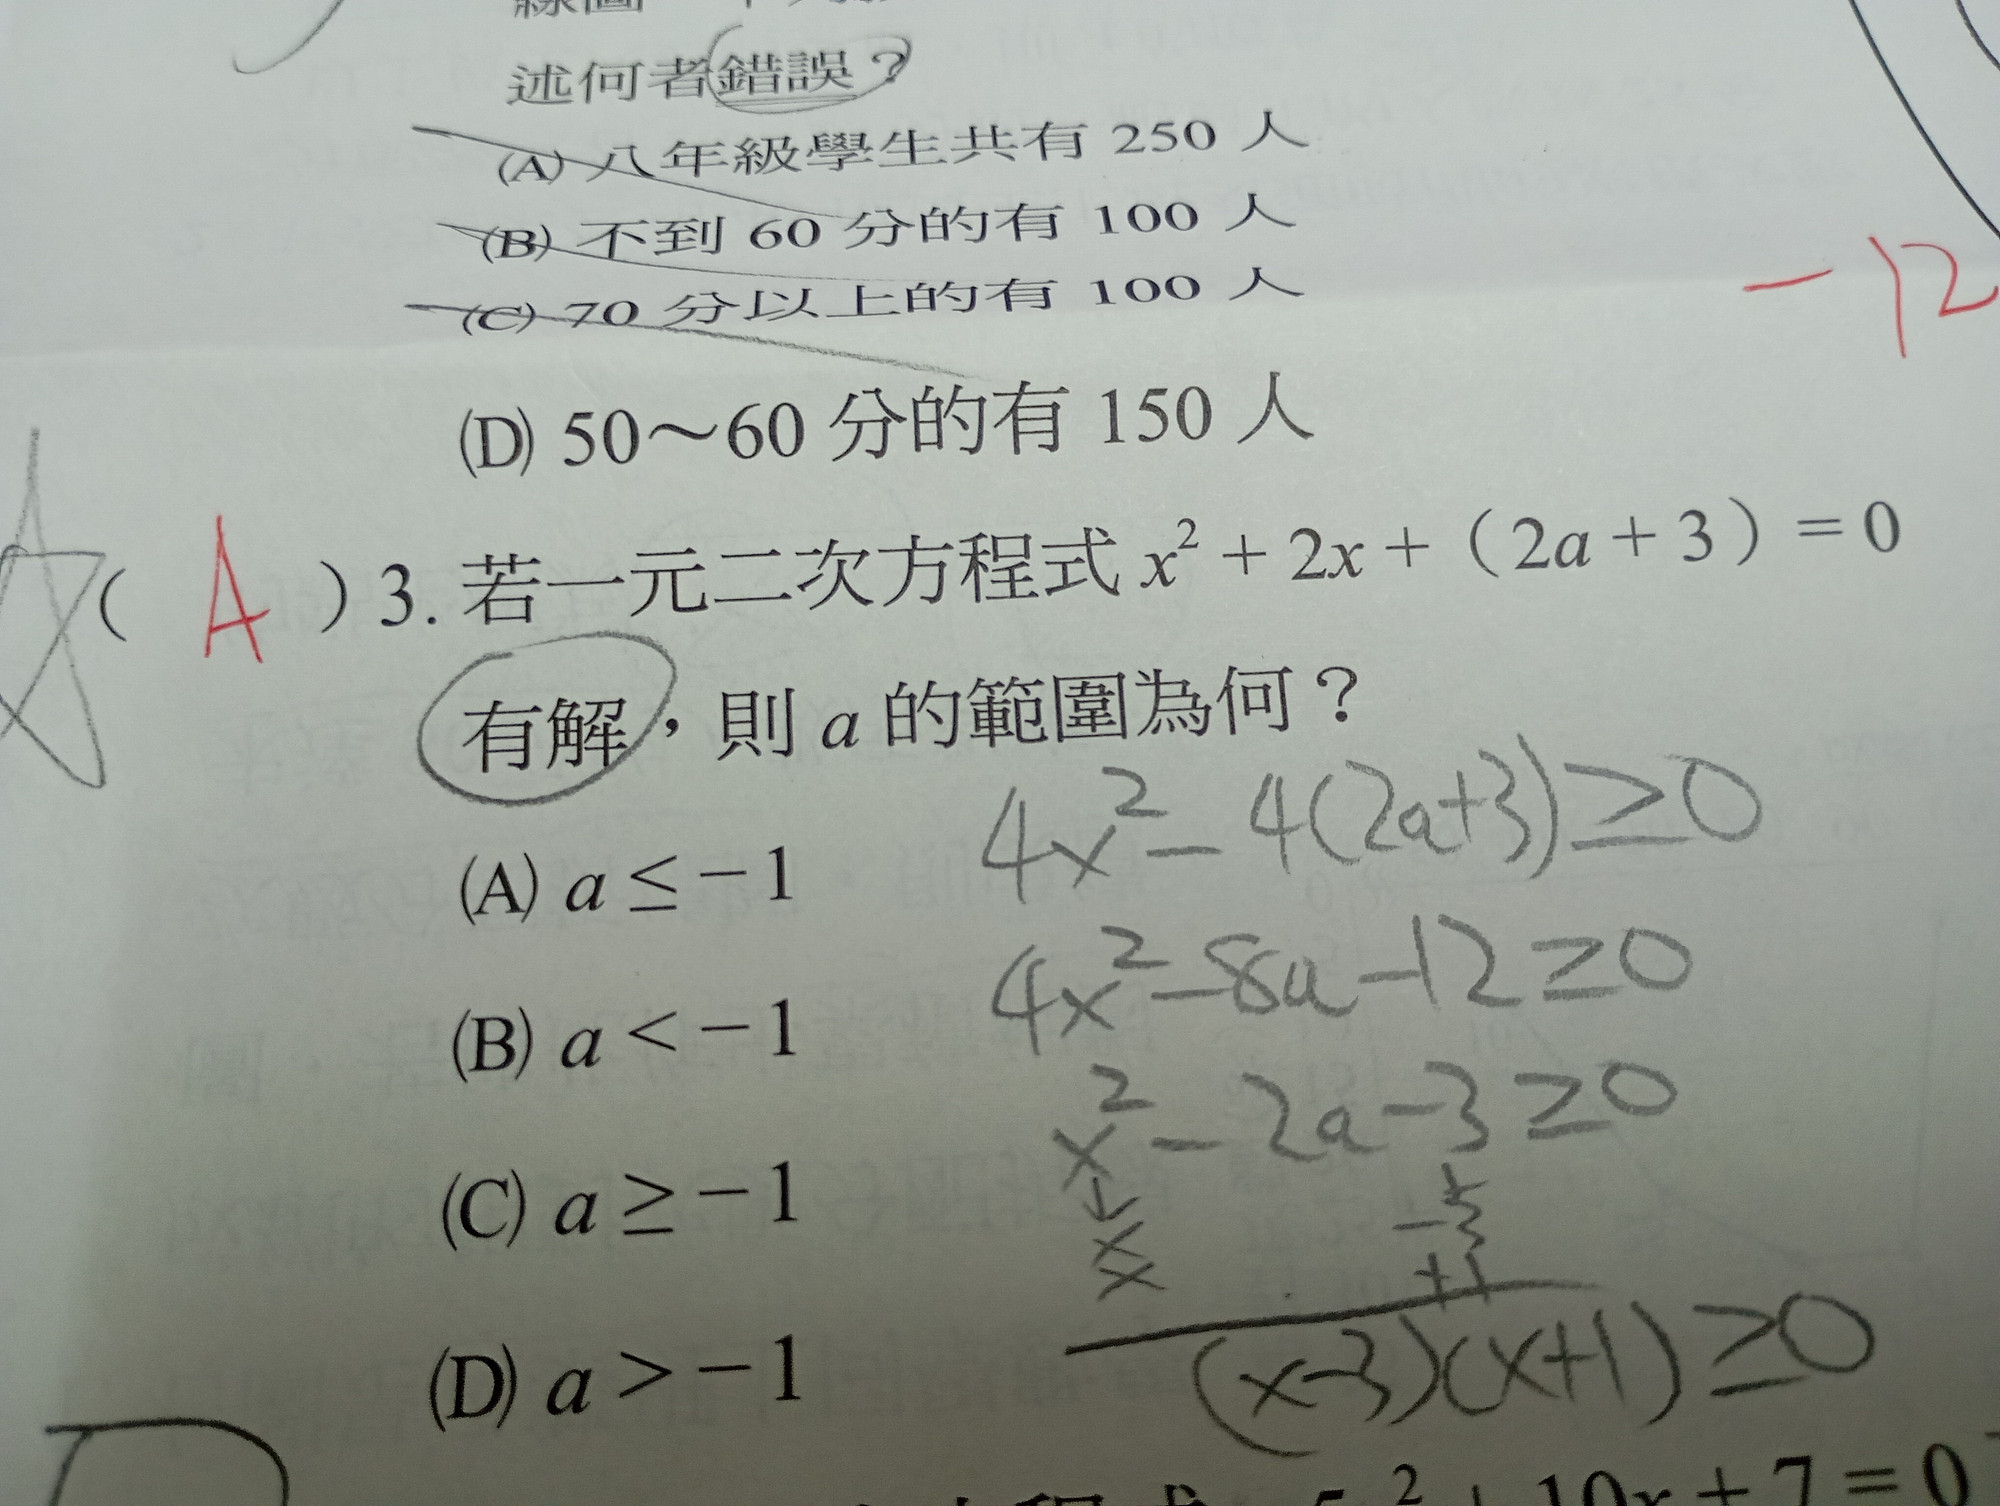 述何者錯誤?
(A) 八年級學生共有 250 人
(B) 不到 60 分的有 100 人
(C) 70 分以上的有 100 人
-12
(D) 50～60 分的有 150 人
( A ) 3. 若一元二次方程式 x² + 2x + (2a + 3) = 0
有解，則 a 的範圍為何？
4x² - 4(2a+3) ≥ 0
(A) a ≤ -1
4x² - 8a - 12 ≥ 0
(B) a < -1
x² - 2a - 3 ≥ 0
(C) a ≥ -1
x
-3
x
+1
(x-3)(x+1) ≥ 0
(D) a > -1
+ 10x + 7 = 0